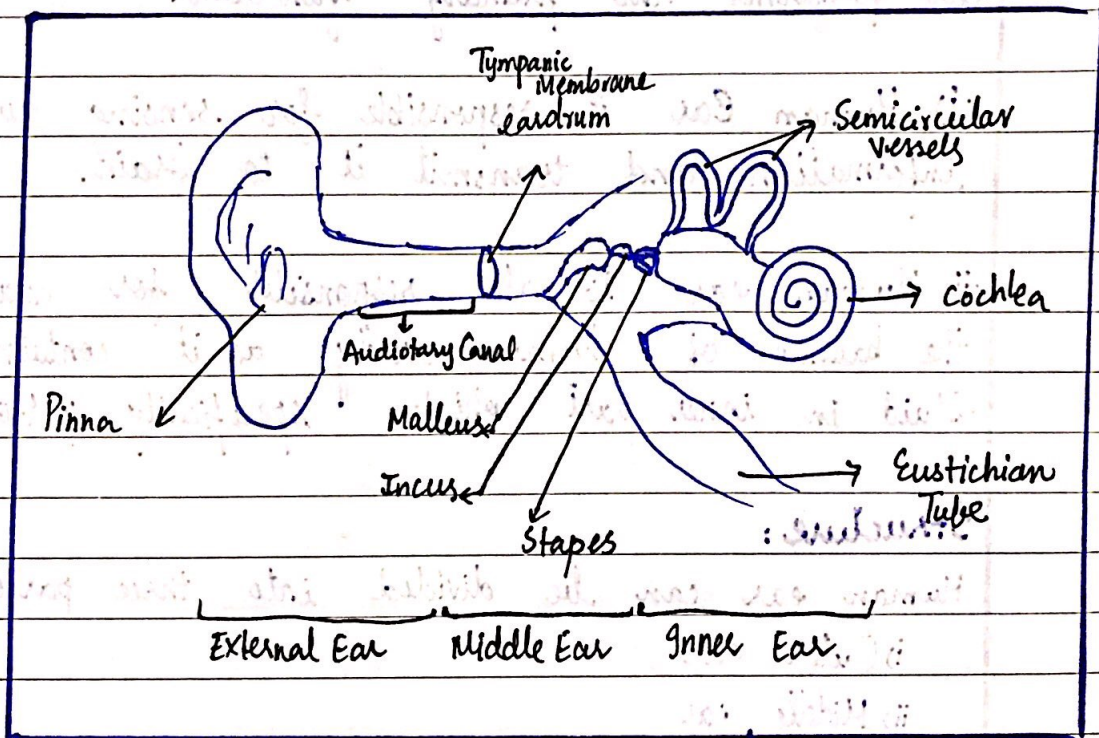 Tympanic
Membrane
eardrum
Semicircular
vessels
cochlea
Audiotary Canal
Pinna
Malleus
Incus
Stapes
Eustichian
Tube
External Ear
Middle Ear
Inner Ear